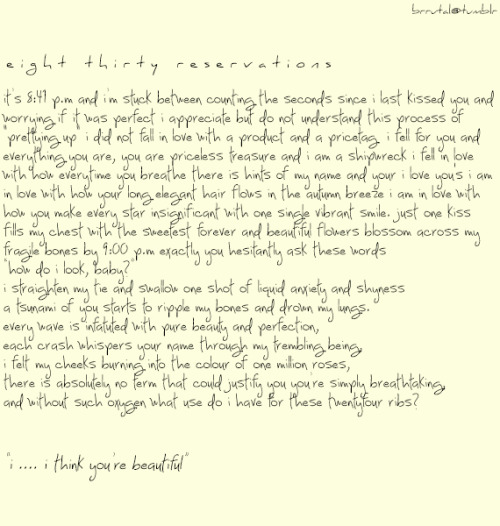 brrutal@tumblr
eight thirty reservations
it's 8:47 p.m and i'm stuck between counting the seconds since i last kissed you and
worrying if it was perfect i appreciate but do not understand this process of
"prettying up" i did not fall in love with a product and a pricetag i fell for you and
everything you are, you are priceless treasure and i am a shipwreck i fell in love
with how everytime you breathe there is hints of my name and your i love you's i am
in love with how your long elegant hair flows in the autumn breeze i am in love with
how you make every star insignificant with one single vibrant smile. just one kiss
fills my chest with the sweetest forever and beautiful flowers blossom across my
fragile bones by 9:00 p.m exactly you hesitantly ask these words
"how do i look, baby?"
i straighten my tie and swallow one shot of liquid anxiety and shyness
a tsunami of you starts to ripple my bones and drown my lungs.
every wave is infatuted with pure beauty and perfection,
each crash whispers your name through my trembling being,
i felt my cheeks burning into the colour of one million roses,
there is absolutely no term that could justify you you're simply breathtaking,
and without such oxygen what use do i have for these twentyfour ribs?
"i .... i think you're beautiful"